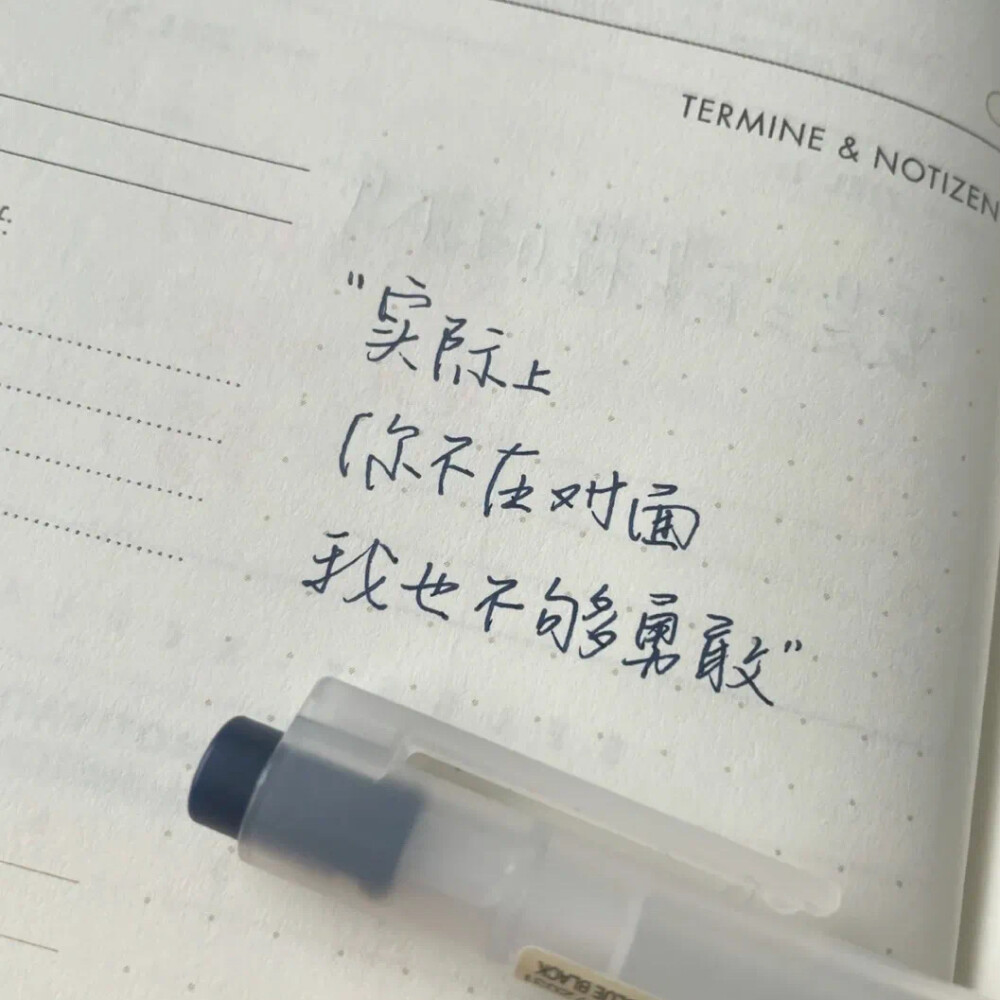 TERMINE & NOTIZEN
"实际上
你不在对面
我也不够勇敢"
BLUE BLACK